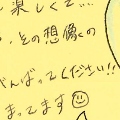 楽しくて…
、その想像くの
んばってください!!
まってます☺